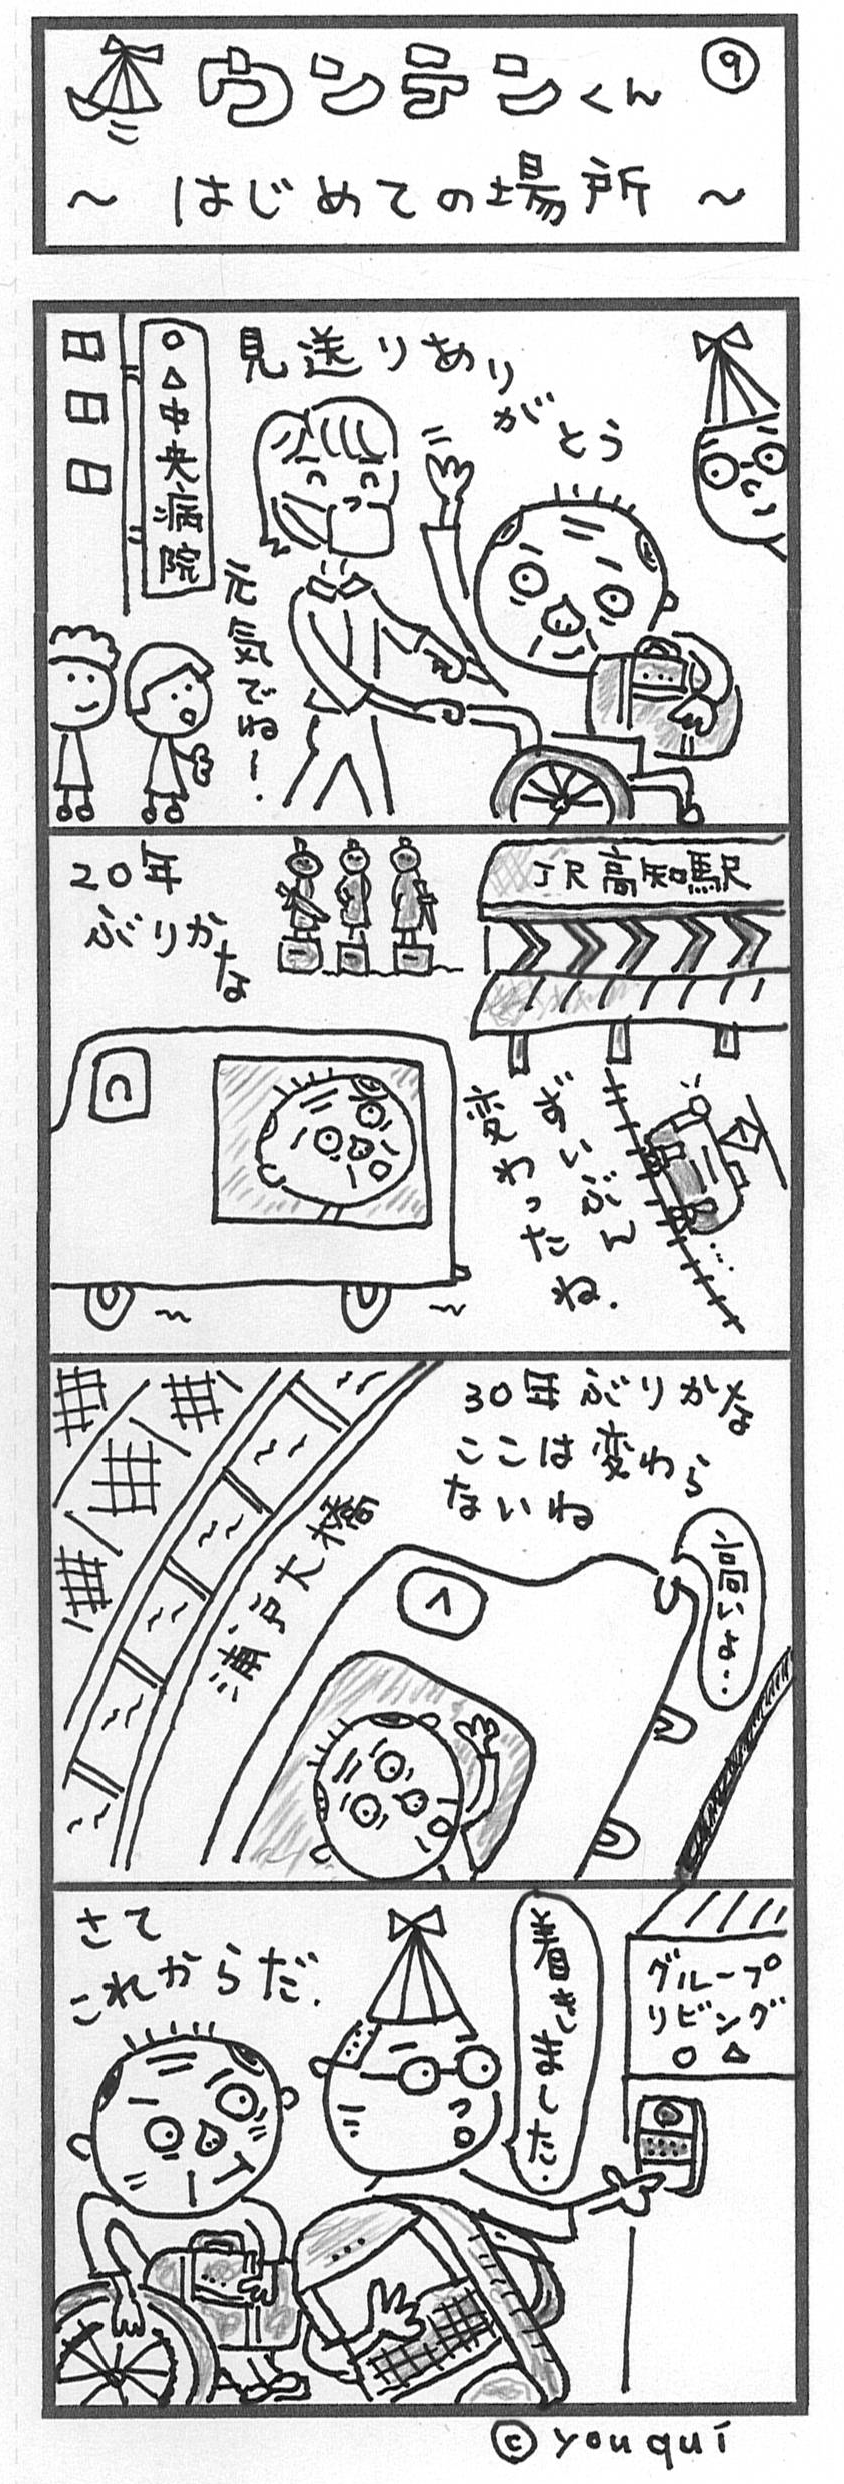 ウンテンくん ⑨
～はじめての場所～
○△中央病院
見送りありがとう
元気でねー.
20年
ぶりかな
JR高知駅
ずいぶん
変わったね.
30年ぶりかな
ここは変わら
ないね
浦戸大橋
さて
これからだ.
着きました.
グループ
リビング
○△
© youqui